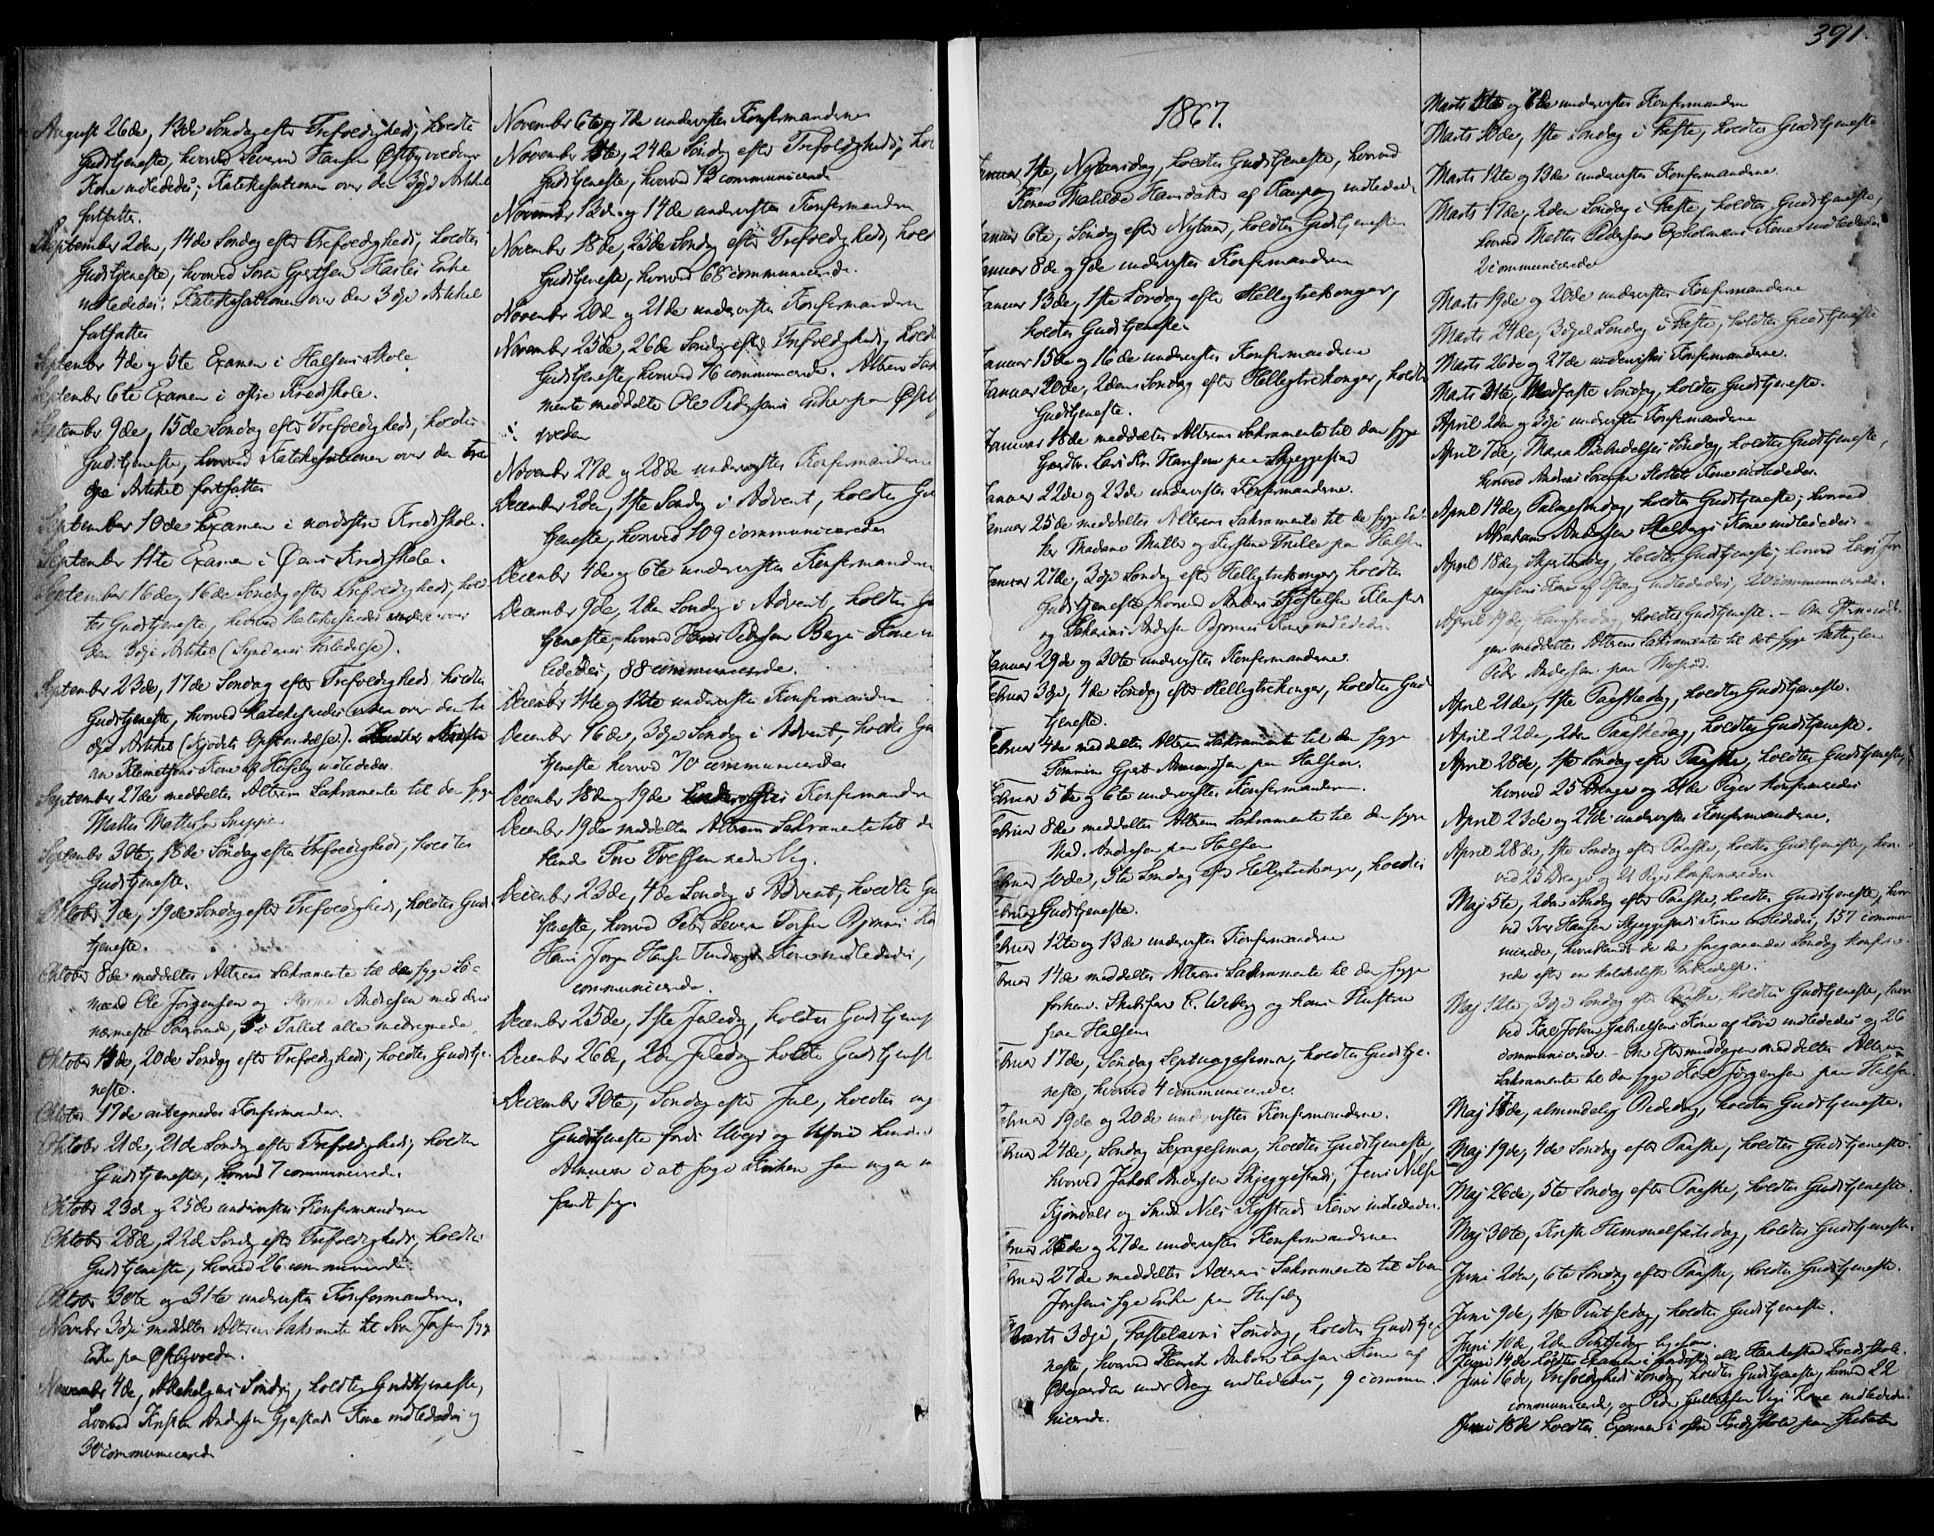 August 26de, 13de Søndag efter Trefoldighed, holdtes
Gudstjeneste, hvorved Severin Hansen Østbyvedens
Kone indlededes; Katekisationen over den 3die Artikel
fortsattes.
September 2den, 14de Søndag efter Trefoldighed, holdtes
Gudstjeneste, hvorved Søren Gjertsen Enke
indlededes; Katekisationen over den 3die Artikel
fortsattes
September 4de og 5te Examen i Halsens Skole.
September 6te Examen i østre Kredsskole.
September 9de, 15de Søndag efter Trefoldighed, holdtes
Gudstjeneste, hvorved Katekisationen over den tre
die Artikel fortsattes
September 10de Examen i nordøstre Kredsskole.
September 11te Examen i Øens Kredsskole.
September 16de, 16de Søndag efter Trefoldighed, hold
tes Gudstjeneste, hvorved katekiseredes over
den 3die Artikel (Syndernes Forladelse).
September 23de, 17de Søndag efter Trefoldighed holdtes
Gudstjeneste, hvorved katekiseredes over den tre
die Artikel (Kjødets Opstandelse).
Klemetsens Kone af Huseby indlededes.
September 27de meddeltes Alterens Sakramente til den syge
Mattes Mattesen
September 30te, 18de Søndag efter Trefoldighed, holdtes
Gudstjeneste.
Oktober 7de, 19de Søndag efter Trefoldighed, holdtes Guds
tjeneste.
Oktober 8de meddeltes Alterens Sakramente til den syge Lo-
mand Ole Jørgensen og Andresen med deres
nærmeste Paarørende, Tallet alle medregnede.
Oktober 14de, 20de Søndag efter Trefoldighed, holdtes Gudstje-
neste.
Oktober 17de antegnedes Konfirmander.
Oktober 21de, 21de Søndag efter Trefoldighed, holdtes
Gudstjeneste, hvorved 7 communicerede.
Oktober 23de og 25de undervistes Konfirmanderne
Oktober 28de, 22de Søndag efter Trefoldighed, holdtes
Gudstjeneste, hvorved 26 communicerede.
Oktober 30te og 31te undervistes Konfirmanderne.
Novembr 3die meddeltes Alterens Sakramente til Sven Jonsens syge
Enke paa Østbyveden.
November 4de, Allehelgens Søndag, holdtes Gudstjeneste,
hvorved Kristen Andersen Gjerstads Kone indlededes og
30 communicerede
November 6te og 7de undervistes Konfirmanderne
November 11te, 24de Søndag efter Trefoldighed, hol
Gudstjeneste, hvorved 13 communicerede
November 13de og 14de undervistes Konfirmanderne
November 18de, 25de Søndag efter Trefoldighed, hold
Gudstjeneste, hvorved 68 communicerede.
November 20de og 21de undervistes Konfirmanderne
November 25de, 26de Søndag efter Trefoldighed, holdt
Gudstjeneste, hvorved 76 communicerede. Alterens Sak
mente meddeltes Ole Pedersens Enke paa Østby
veden
November 27de og 28de undervistes Konfirmanderne
December 2den, 1ste Søndag i Advent, holdtes Gu
tjeneste, hvorved 109 communicerede
December 4de og 6te undervistes Konfirmanderne
December 9de, 2den Søndag i Advent, holdtes Gu
tjeneste, hvorved Hans Pedersen Berge Kone in
lededes, 88 communicerede.
December 11te og 12te undervistes Konfirmanderne
December 16de, 3die Søndag i Advent, holdtes Gu
tjeneste hvorved 70 communicerede
December 18de og 19de undervistes Konfirmanderne
December 19de meddeltes Alterens Sakramente til den
blinde Tove nedre Veg.
December 23de, 4de Søndag i Advent, holdtes Gu
tjeneste, hvorved Peder Severin Bjønnes
Hans Jørgen Hansen Kone indlededes,
communicerede.
December 25de, 1ste Juledag, holdtes Gudstjenest
December 26de, 2den Juledag holdtes Gudstjenest
December 30te, Søndag efter Jul, holdtes ing
Gudstjeneste fordi Uveir og Uføre hindre
Almuen i at søge Kirken saa ingen in
fandt sig.
391.
1867.
Januar 1ste, Nytaarsdag, holdtes Gudstjeneste, hvorved
Konen Matilde Hansdatter af Kaupang indlededes
Januar 6te, Søndag efter Nytaar, holdtes Gudstjeneste
Januar 8de og 9de undervistes Konfirmanderne
Januar 13de, 1ste Søndag efter Helligtrekonger,
holdtes Gudstjeneste.
Januar 15de og 16de undervistes Konfirmanderne
Januar 20de, 2den Søndag efter Helligtrekonger, holdtes
Gudstjeneste.
Januar 18de meddeltes Alterens Sakramente til den syge
Gaardbr. Lars Kr. Hansen paa Skjeggestad
Januar 22de og 23de undervistes Konfirmanderne.
Januar 25de meddeltes Alterens Sakramente til de syge En-
ker Madame Müller og Kirstine Trille paa Halsen
Januar 27de, 3die Søndag efter Helligtrekonger, holdtes
Gudstjeneste hvorved Anders
og Sakarias Andersen Bjønnes Koner indlededes.
Januar 29de og 30te undervistes Konfirmanderne.
Februar 3die, 4de Søndag efter Helligtrekonger, holdtes Guds
tjeneste.
Februar 4de meddeltes Alterens Sakramente til den syge
Tømmerm. Gjert Amundsen paa Halsen.
Februar 5te og 6te undervistes Konfirmanderne.
Februar 8de meddeltes Alterens Sakramente til den syge
Mad. Andersen paa Halsen
Februar 10de, 5te Søndag efter Helligtrekonger, holdtes
Gudstjeneste.
Februar 12te og 13de undervistes Konfirmanderne
Februar 14de meddeltes Alterens Sakramente til den syge
forhen. Skibsfører C. Weberg og hans Hustru
paa Halsen
Februar 17de, Søndag Septuagesima, holdtes Gudstje-
neste, hvorved 4 communicerede.
Februar 19de og 20de undervistes Konfirmanderne.
Februar 24de, Søndag Sexagesima, holdtes Gudstjeneste,
hvorved Jakob Andersen Skjeggestads, Jens Nilsen
Kjøndals og Smed Nils Rystads Koner indlededes.
Februar 26de og 27de undervistes Konfirmanderne
Februar 27de meddeltes Alterens Sakramente til Sven
Jonsens syge Enke paa Huseby
Marts 3die, Fastelavns Søndag, holdtes Gudstje-
neste, hvorved Henrik Anton Larsens Kone af
Øvegaarden under Berg indlededes, 9 commu-
nicerede.
Marts 5te og 6te undervistes Konfirmanderne
Marts 10de, 1ste Søndag i Faste, holdtes Gudstjeneste
Marts 12te og 13de undervistes Konfirmanderne.
Marts 17de, 2den Søndag i Faste, holdtes Gudstjeneste,
hvorved Mattes Pedersen Oxholmens Kone indlededes
2 communicerede
Marts 19de og 20de undervistes Konfirmanderne
Marts 24de, 3die Søndag i Faste, holdtes Gudstjeneste
Marts 26de og 27de undervistes Konfirmanderne.
Marts 31te, Midfaste Søndag, holdtes Gudstjeneste.
April 2den og 3die undervistes Konfirmanderne
April 7de, Maria Bebudelses Søndag, holdtes Gudstjeneste,
hvorved Andreas Sørensen Kone indlededes.
April 14de, Palmesøndag, holdtes Gudstjeneste, hvorved
Abraham Andersen Skallbergs Kone indlededes.
April 18de, Skjærtorsdag, holdtes Gudstjeneste, hvorved Lars Jør
gensens Kone af indlededes, 20 communicerede.
April 19de, Langfredag, holdtes Gudstjeneste. - Om Eftermidda-
gen meddeltes Alterens Sakramente til det syge
Peder Andersen paa
April 21de, 1ste Paaskedag, holdtes Gudstjeneste.
April 22de, 2den Paaskedag, holdtes Gudstjeneste.
April 28de, 1ste Søndag efter Paaske, holdtes Gudstjeneste,
hvorved 25 Drenge og 21 Piger konfirmeredes
April 23de og 27de undervistes Konfirmanderne.
April 28de, 1ste Søndag efter Paaske, holdtes Gudstjeneste, hvor-
ved 25 Drenge og 21 Piger konfirmeredes
Maj 5te, 2den Søndag efter Paaske, holdtes Gudstjeneste, hvor
ved Iver Hansen Skjeggestads Kone indlededes, 157 commu-
nicerede, hvoriblandt de den foregaaende Søndag konfirme-
rede efter en kateketisk Indledelse.
Maj 12te, 3die Søndag efter Paaske, holdtes Gudstjeneste, hvor
ved Karl Johan Gabrielsens Kone af indlededes og 26
communicerede. - Om Eftermiddagen meddeltes Alterens
Sakramente til den syge Jørgensen paa Halsen
Maj 17de, almindelig Bededag, holdtes Gudstjeneste.
Maj 19de, 4de Søndag efter Paaske, holdtes Gudstjeneste.
Maj 26de, 5te Søndag efter Paaske, holdtes Gudstjeneste.
Maj 30te, Kristi Himmelfartsdag, holdtes Gudstjeneste.
Juni 2den, 6te Søndag efter Paaske, holdtes Gudstjeneste.
Juni 9de, 1ste Pintsedag, holdtes Gudstjeneste.
Juni 10de, 2den Pintsedag ligesaa.
Juni 14de holdtes Examen i nordøstre eller Kredsskole.
Juni 16de, Trefoldigheds Søndag, holdtes Gudstjeneste, hvorved 22
communicerede, og Peder Gulliksen Vegs Kone indlededes
Juni 18de holdtes Examen i østre Kredsskole paa